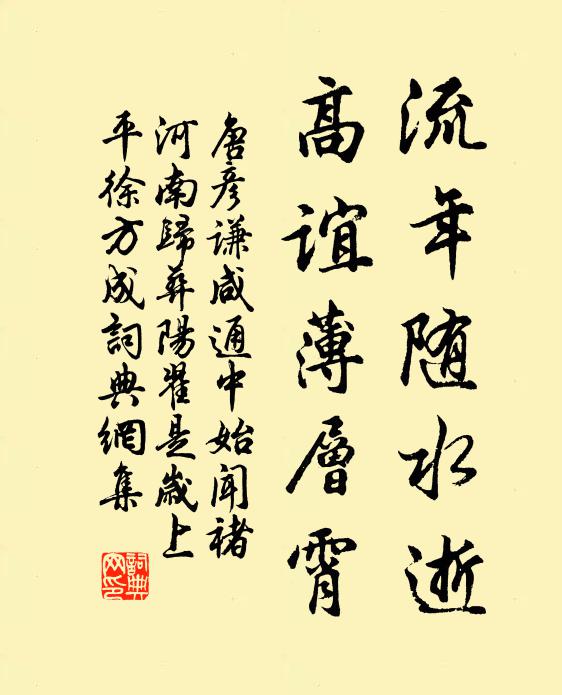 流年随水逝
高誼薄層霄
唐彥谦咸通中始闻褚
河南歸葬陽翟是歲上
平徐方成詞典網集
詞典网印